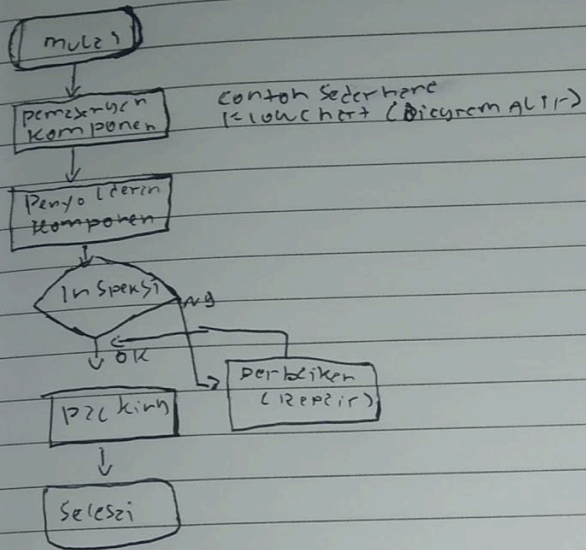 mulai
pemasangan
komponen
contoh Sederhana
Flowchart (Diagram Alir)
Penyolderan
komponen
Inspeksi
Ng
OK
perbaikan
(Repair)
packing
Selesai